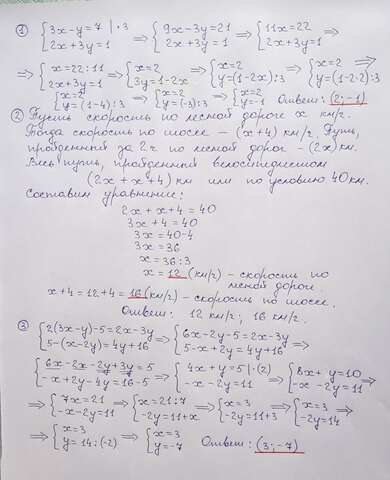 ① {3x-y=7 |·3 {2x+3y=1 ⇒ {9x-3y=21 {2x+3y=1 ⇒ {11x=22 {2x+3y=1
⇒ {x=22:11 {2x+3y=1 ⇒ {x=2 {3y=1-2x ⇒ {x=2 {y=(1-2x):3 ⇒ {x=2 {y=(1-2·2):3 ⇒
{x=2 {y=(1-4):3 ⇒ {x=2 {y=(-3):3 ⇒ {x=2 {y=-1 Ответ: (2;-1)
② Пусть скорость по лесной дороге x км/г.
Тогда скорость по шоссе – (x+4) км/г. Путь,
пройденный за 2ч по лесной дорог – (2x) км.
Весь путь, пройденный велосипедистом
(2x+x+4) км или по условию 40км.
Составим уравнение:
2x+x+4=40
3x+4=40
3x=40-4
3x=36
x=36:3
x=12 (км/г) – скорость по
лесной дороге.
x+4=12+4=16 (км/г) – скорость по шоссе.
Ответ: 12 км/г; 16 км/г.
③ {2(3x-y)-5=2x-3y {5-(x-2y)=4y+16 ⇒ {6x-2y-5=2x-3y {5-x+2y=4y+16 ⇒
{6x-2x-2y+3y=5 {-x+2y-4y=16-5 ⇒ {4x+y=5 |·(2) {-x-2y=11 ⇒ {8x+y=10 {-x-2y=11
⇒ {7x=21 {-x-2y=11 ⇒ {x=21:7 {-2y=11+x ⇒ {x=3 {-2y=11+3 ⇒ {x=3 {-2y=14
⇒ {x=3 {y=14:(-2) ⇒ {x=3 {y=-7 Ответ: (3;-7)